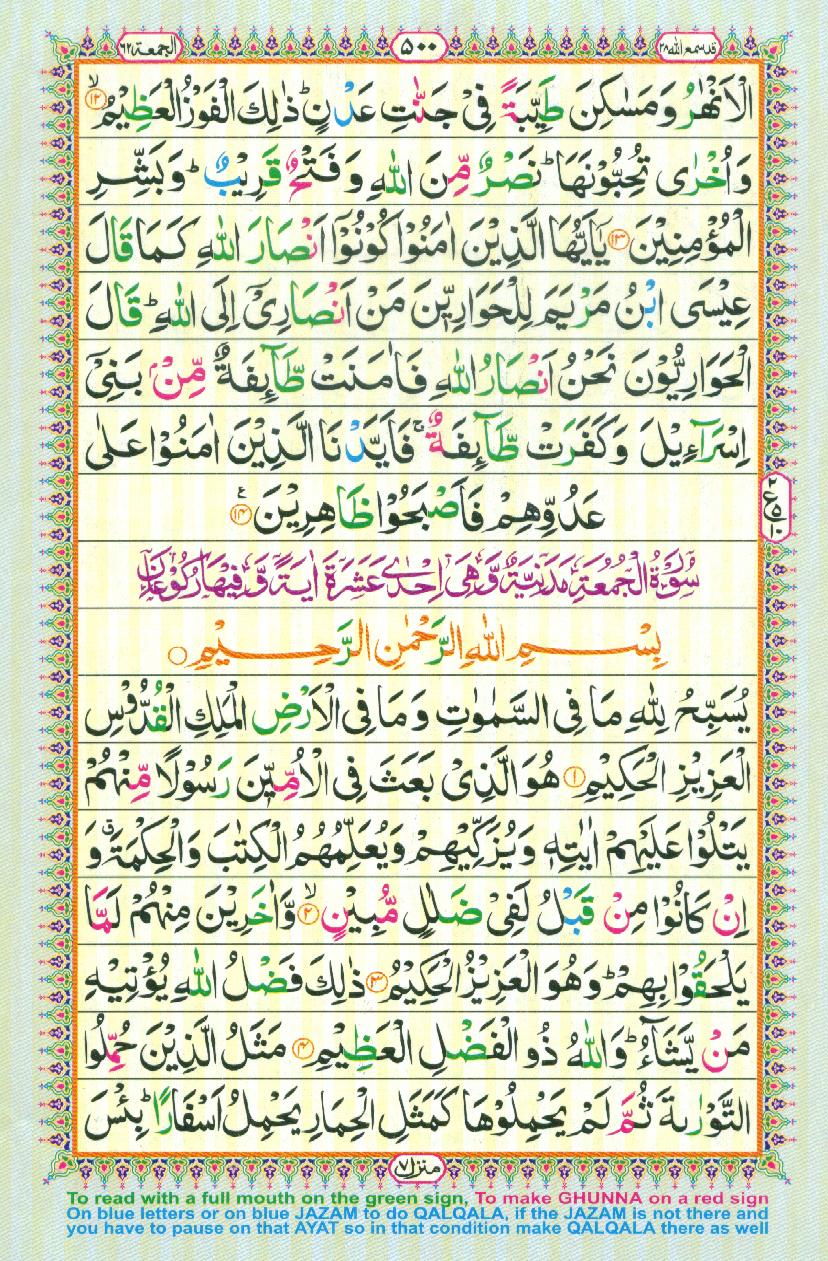 قد سمع الله ٢٨
٥٠٠
الجمعة ٦٢
الْاَنْهٰرُ وَمَسٰكِنَ طَيِّبَةً فِىْ جَنّٰتِ عَدْنٍ ؕ ذٰلِكَ الْفَوْزُ الْعَظِيْمُ ۙ‏﴿۱۲﴾
وَاُخْرٰى تُحِبُّوْنَهَا ؕ نَصْرٌ مِّنَ اللّٰهِ وَفَتْحٌ قَرِيْبٌ ؕ وَبَشِّرِ
الْمُؤْمِنِيْنَ ﴿۱۳﴾ يٰۤاَيُّهَا الَّذِيْنَ اٰمَنُوْا كُوْنُوْۤا اَنْصَارَ اللّٰهِ كَمَا قَالَ
عِيْسَى ابْنُ مَرْيَمَ لِلْحَوَارِيّٖنَ مَنْ اَنْصَارِىْۤ اِلَى اللّٰهِ ؕ قَالَ
الْحَوَارِيُّوْنَ نَحْنُ اَنْصَارُ اللّٰهِ فَاٰمَنَتْ طَّآٮِٕفَةٌ مِّنْۢ بَنِىْۤ
اِسْرَآءِيْلَ وَكَفَرَتْ طَّآٮِٕفَةٌ ۚ فَاَيَّدْنَا الَّذِيْنَ اٰمَنُوْا عَلٰى
عَدُوِّهِمْ فَاَصْبَحُوْا ظَاهِرِيْنَ ﴿۱۴﴾
ع
٢
٥
١٠
سُوْرَةُ الْجُمُعَةِ مَدَنِيَّةٌ وَّهِىَ اِحْدٰى عَشَرَةَ اٰيَةً وَّفِيْهَا رُكُوْعَانِ
بِسْمِ اللّٰهِ الرَّحْمٰنِ الرَّحِيْمِ
يُسَبِّحُ لِلّٰهِ مَا فِى السَّمٰوٰتِ وَمَا فِى الْاَرْضِ الْمَلِكِ الْقُدُّوْسِ
الْعَزِيْزِ الْحَكِيْمِ ﴿۱﴾ هُوَ الَّذِىْ بَعَثَ فِى الْاُمِّيّٖنَ رَسُوْلًا مِّنْهُمْ
يَتْلُوْا عَلَيْهِمْ اٰيٰتِهٖ وَيُزَكِّيْهِمْ وَيُعَلِّمُهُمُ الْكِتٰبَ وَالْحِكْمَةَ ۗ وَ
اِنْ كَانُوْا مِنْ قَبْلُ لَفِىْ ضَلٰلٍ مُّبِيْنٍ ۙ‏﴿۲﴾ وَّاٰخَرِيْنَ مِنْهُمْ لَمَّا
يَلْحَقُوْا بِهِمْ ؕ وَهُوَ الْعَزِيْزُ الْحَكِيْمُ ﴿۳﴾ ذٰلِكَ فَضْلُ اللّٰهِ يُؤْتِيْهِ
مَنْ يَّشَآءُ ؕ وَاللّٰهُ ذُو الْفَضْلِ الْعَظِيْمِ ﴿۴﴾ مَثَلُ الَّذِيْنَ حُمِّلُوا
التَّوْرٰٮةَ ثُمَّ لَمْ يَحْمِلُوْهَا كَمَثَلِ الْحِمَارِ يَحْمِلُ اَسْفَارًا ؕ بِئْسَ
منزل ٧
To read with a full mouth on the green sign, To make GHUNNA on a red sign
On blue letters or on blue JAZAM to do QALQALA, if the JAZAM is not there and
you have to pause on that AYAT so in that condition make QALQALA there as well